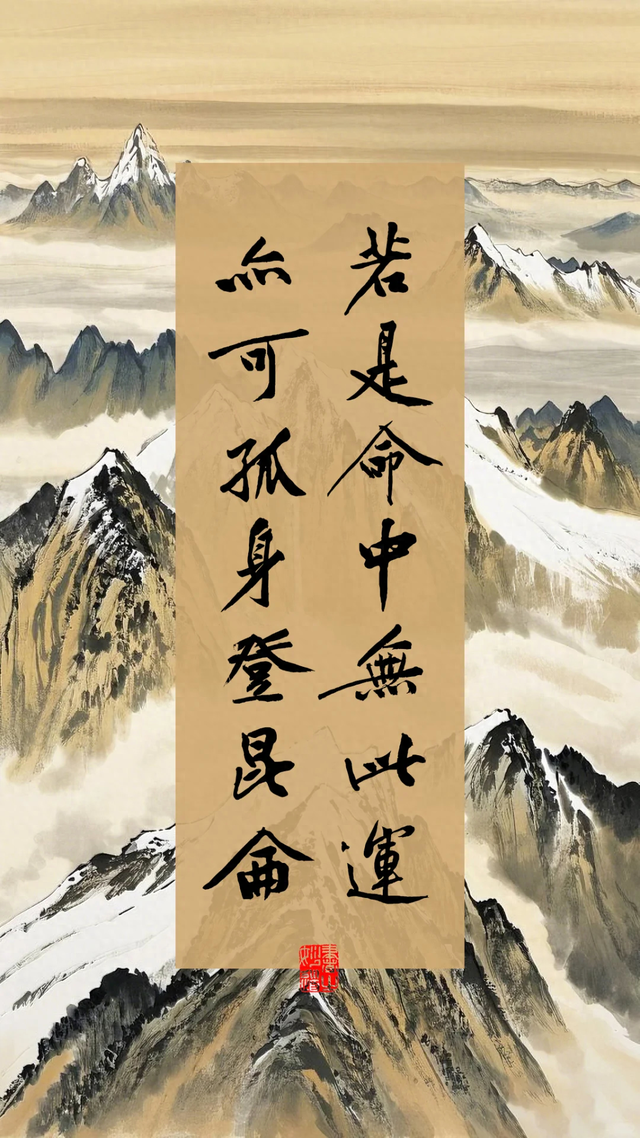 若是命中無此運
亦可孤身登昆侖